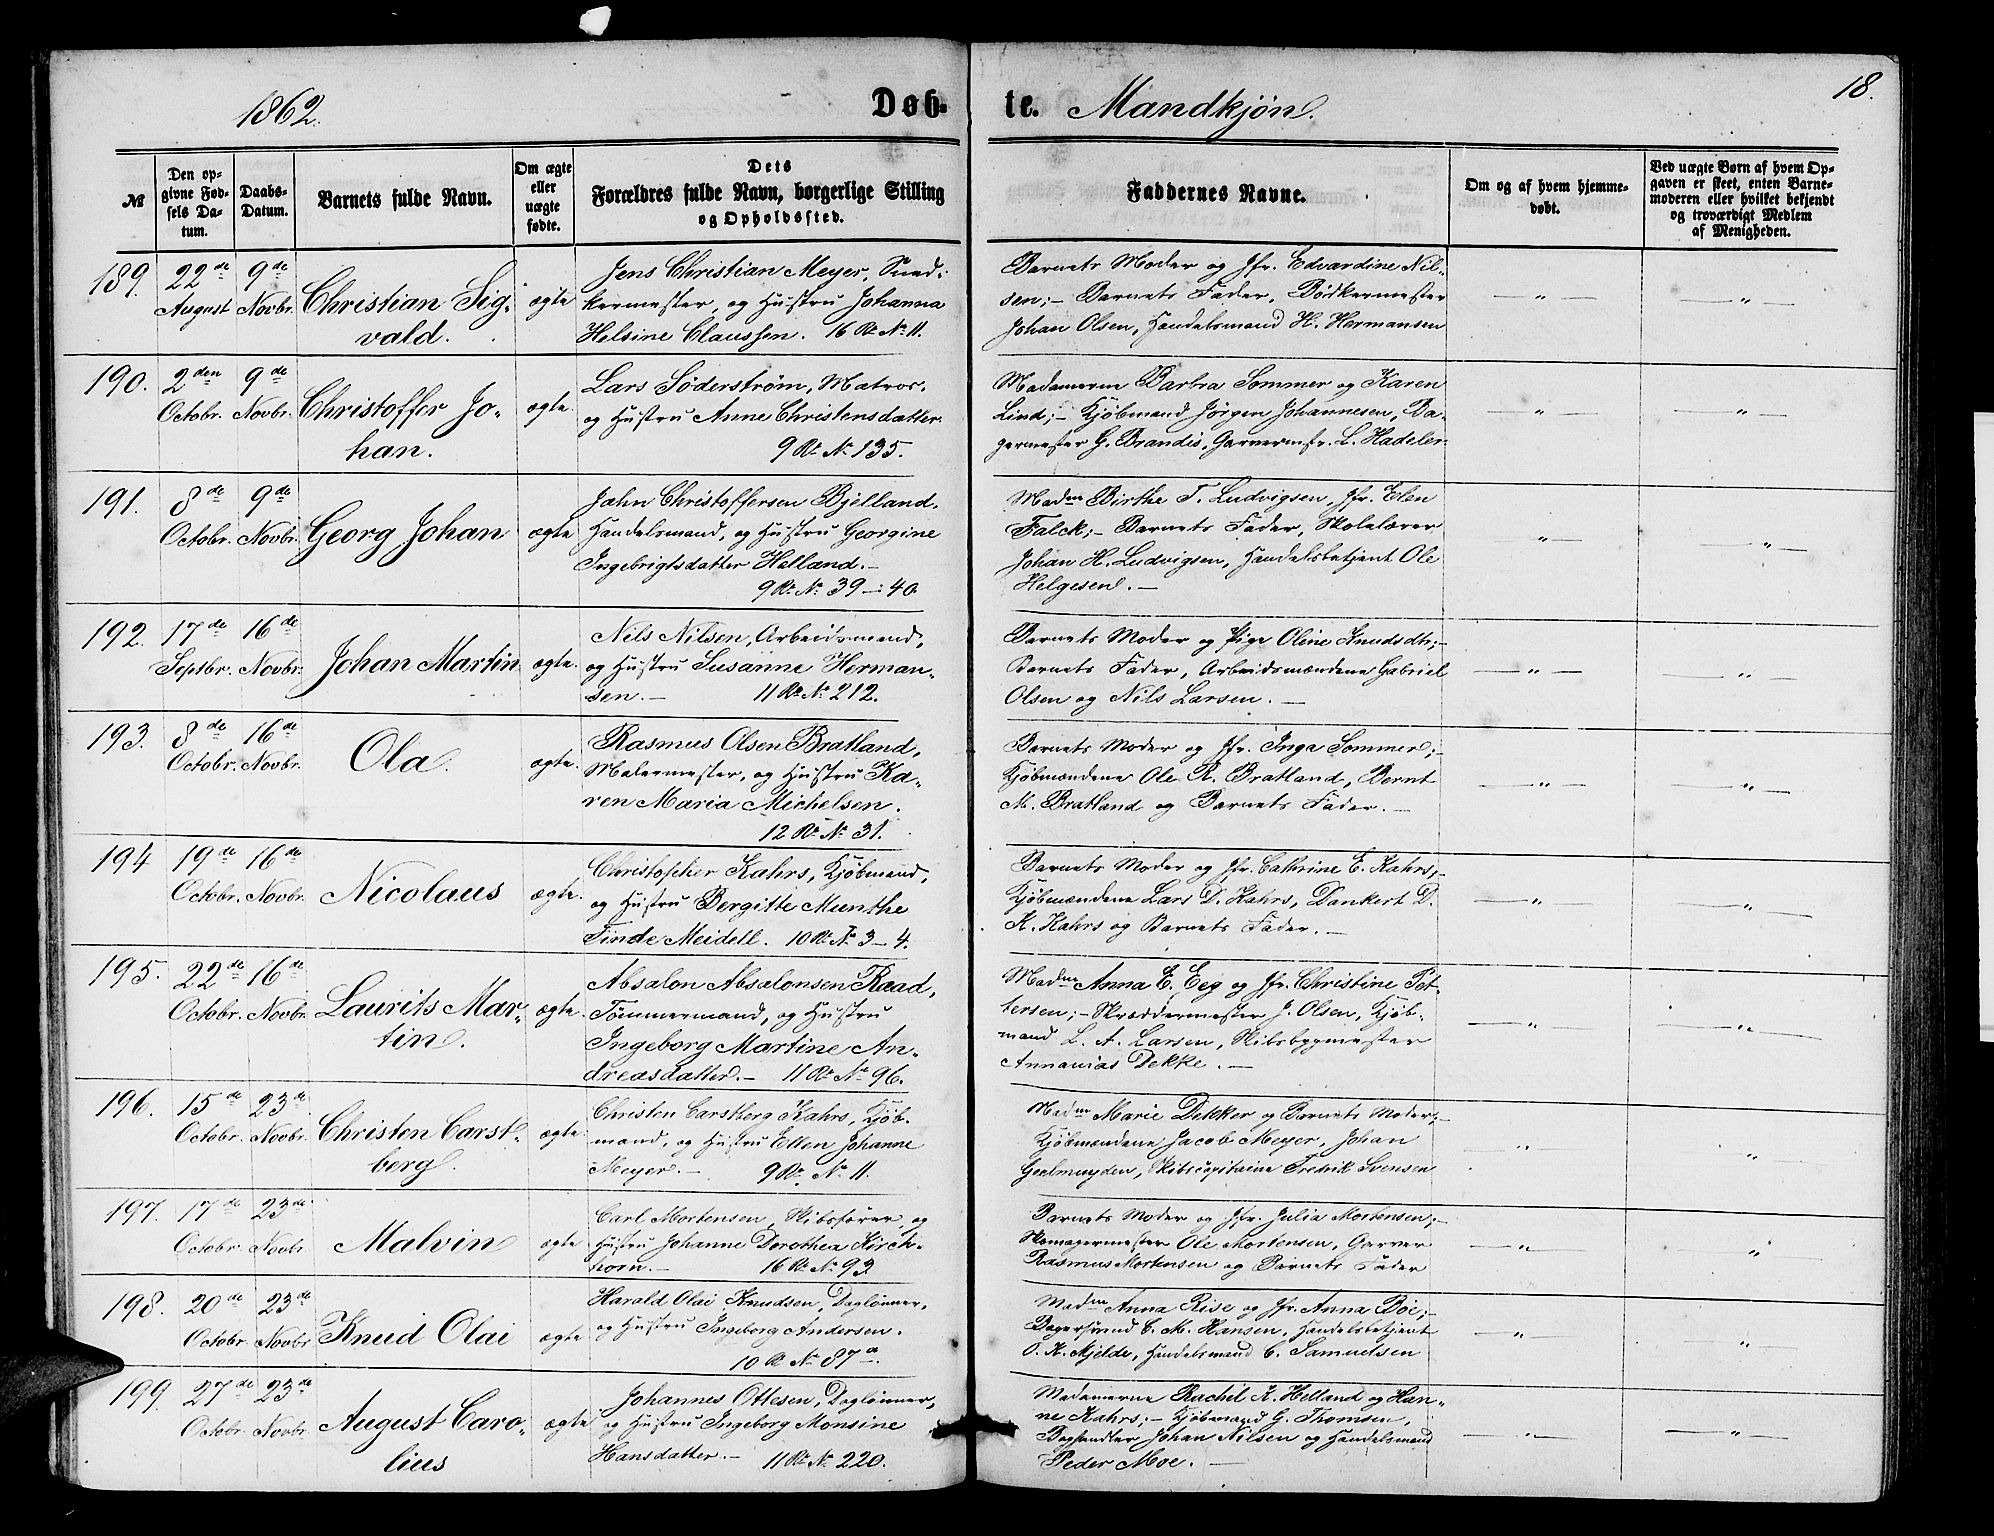 1862. Døb- te. Mandkjøn. 18.
№
Den op-
givne Fød-
sels Da-
tum.
Daabs-
Datum.
Barnets fulde Navn.
Om ægte
eller
uægte
fødte.
Dets
Forældres fulde Navn, borgerlige Stilling
og Opholdssted.
Faddernes Navne.
Om og af hvem hjemme-
døbt.
Ved uægte Børn af hvem Op-
gaven er skeet, enten Barne-
moderen eller hvilket bekjendt
og troværdigt Medlem
af Menigheden.
189. 22de August 9de Novbr.
Christian Sig-
vald.
ægte
Jens Christian Meyer, Sned-
kermester, og Hustru Johanna
Helsine Claussen. 16 R. № 11.
Barnets Moder og Jfr. Edvardine Nil-
sen;- Barnets Fader, Bødkermester
Johan Olsen, Handelsmand H. Hermansen
—"— —"—
190. 2den Octobr. 9de Novbr.
Christoffer Jo-
han.
ægte.
Lars Söderström, Matros,
og Hustru Anne Christensdatter.
9 R. № 135.
Madamerne Barbra Sommer og Karen
Lind;- Kjøbmand Jørgen Johannesen, Ba-
germester G. Brandis, Garvermstr. L. Hadeler.
—"— —"—
191. 8de Octobr. 9de Novbr.
Georg Johan
ægte
John Christoffersen Bjelland,
Handelsmand, og Hustru Georgine
Ingebrigtsdatter Helland.-
9 R. № 39-40.
Madm Birthe T. Ludvigsen, Jfr. Elen
Falck;- Barnets Fader, Skolelærer
Johan H. Ludvigsen, Handelsbetjent Ole
Helgesen.-
—"— —"—
192. 17de Septbr. 16de Novbr.
Johan Martin
ægte.
Nils Nilsen, Arbeidsmand,
og Hustru Susanne Herman-
sen.- 11 R. № 212.
Barnets Moder og Pige Oline Knudsdtr;-
Barnets Fader, Arbeidsmændene Gabriel
Olsen og Nils Larsen.-
—"— —"—
193. 8de Octobr. 16de Novbr.
Ola.
ægte.
Rasmus Olsen Bratland,
Malermester, og Hustru Ka-
ren Maria Michelsen.
12 R. № 31.
Barnets Moder og Jfr. Inga Sommer;-
Kjøbmændene Ole R. Bratland, Bernt
M. Bratland og Barnets Fader.-
—"— —"—
194 19de Octobr. 16de Novbr.
Nicolaus
ægte.
Christopher Kahrs, Kjøbmand,
og Hustru Bergitte Munthe
Finde Meidell. 10 R. № 3-4.
Barnets Moder og Jfr. Cathrine E. Kahrs;-
Kjøbmændene Lars D. Kahrs, Dankert D.
K. Kahrs og Barnets Fader.-
—"— —"—
195. 22de Octobr. 16de Novbr.
Laurits Mar-
tin.
ægte.
Absalon Absalonsen Raad,
Tömmermand, og Hustru
Ingeborg Martine An-
dreasdatter.- 11 R. № 96.
Madme Anna E. Eeg og Jfr. Christine Pet-
tersen;- Skræddermester J. Olsen, Kjøb-
mand L. A. Larsen, Skibsbygmester
Annanias Dekke.-
—"— —"—
196. 15de Octobr. 23de Novbr.
Christen Carst-
berg.
ægte
Christen Carstberg Kahrs, Kjøb-
mand, og Hustru Ellen Johanne
Meyer.- 9 R. № 11.
Madm Marie Dekker og Barnets Moder;-
Kjøbmændene Jacob Meyer, Johan
Geelmuyden, Skibscapitaine Fredrik Svensen
—"— "
197. 17de Octobr. 23de Novbr.
Malvin
ægte
Carl Mortensen, Skibsfører, og
Hustru Johanne Dorothea Kirch-
horn.- 16 R. № 93.
Barnets Moder og Jfr. Julia Mortensen;-
Skomagermester Ole Mortensen, Garver
Rasmus Mortensen og Barnets Fader
—"— "
198. 20de Octobr. 23de Novbr.
Knud Olai
ægte
Harald Olai Knudsen, Daglønner,
og Hustru Ingeborg Andersen.
10 R. № 87a.
Madm Anna Rise og Jfr. Anna Böe;-
Bagersvend C. M. Hansen, Handelsbetjent
O. K. Mjelde, Handelsmand C. Samuelsen
" "
199. 27de Octobr. 23de Novbr.
August Caro-
lius
ægte
Johannes Ottesen, Daglønner,
og Hustru Ingeborg Monsine
Hansdatter.- 11 R. № 220.
Madamerne Rachil K. Helland og Han-
ne Kahrs;- Kjøbmand G. Thomsen,
Boghandler Johan Nilsen og Handelsmand
Peder Moe.-
—"— —"—